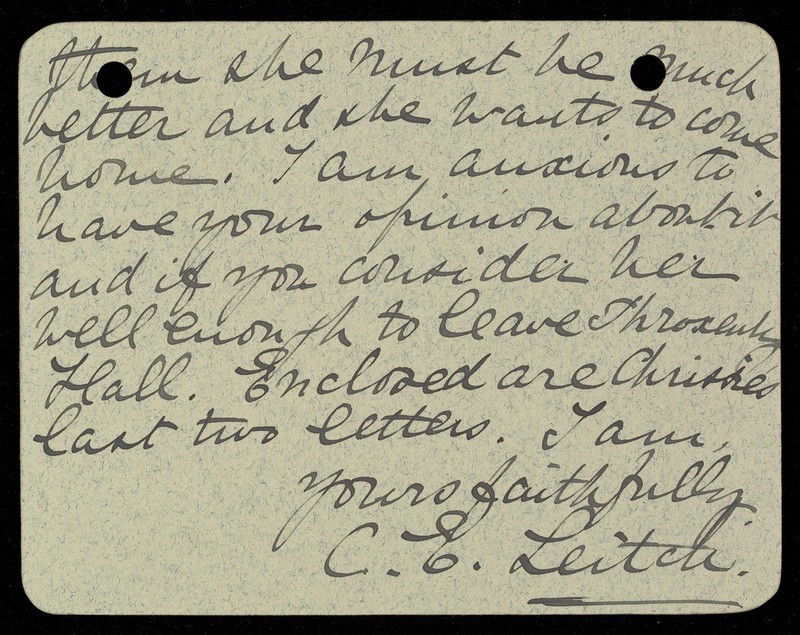 them she must be much
better and she wants to come
home. I am anxious to
have your opinion about it
and if you consider her
well enough to leave Throxenby
Hall. Enclosed are Chrissie's
last two letters. I am,
yours faithfully.
C. E. Leitch.